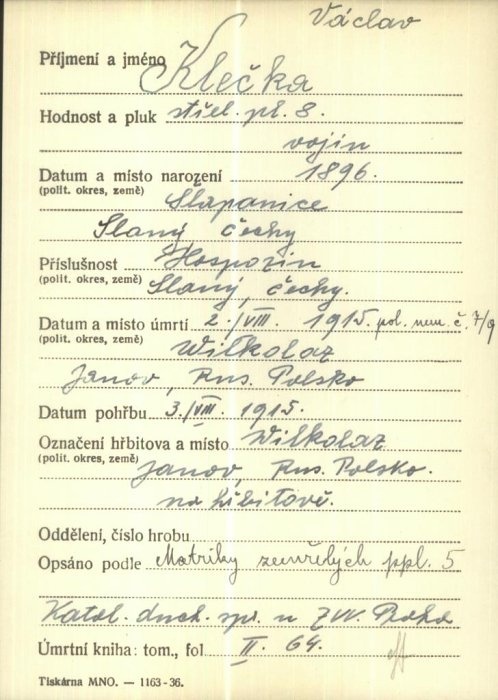 Václav
Příjmení a jméno Klečka
Hodnost a pluk střel. pl. 8.
vojín
Datum a místo narození 1896.
(polit. okres, země) Šlapanice
Slaný čechy
Příslušnost Hospozín
(polit. okres, země) Slaný, čechy.
Datum a místo úmrtí 2./VIII. 1915. pol. nem. č. 7/9
(polit. okres, země) Wilkolaz
Janov, Rus. Polsko
Datum pohřbu 3./VIII. 1915.
Označení hřbitova a místo Wilkolaz
(polit. okres, země) Janov, Rus. Polsko.
na hřbitově.
Oddělení, číslo hrobu
Opsáno podle Matriky zemřelých ppl. 5
Katol. duch. spr. u ZVV. Praha
Úmrtní kniha: tom., fol II. 64.
Tiskárna MNO. — 1163-36.